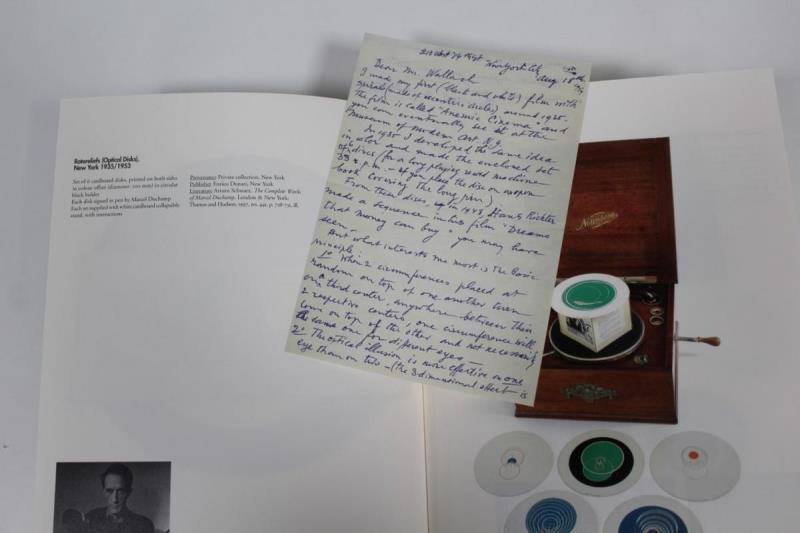 Rotoreliefs (Optical Disks),
New York 1935/1953
Set of 6 cardboard disks, printed on both sides
in colour offset (diameter: 200 mm) in circular
black holder
Each disk signed in pen by Marcel Duchamp
Each set supplied with white cardboard collapsible
stand, with instructions
Provenance Private collection, New York
Publisher Enrico Donati, New York
Literature Arturo Schwarz, The Complete Works
of Marcel Duchamp, London & New York:
Thames and Hudson, 1997, no.
New York City
Aug 18th
Dear Mr. Wallach
I made my first (black and white) film with
spirals (made of eccentric circles) around 1925.
The film is called "Anemic Cinema" and
you can eventually see it at the
Museum of Modern Art N.Y.
In 1935 I developed the same idea
in color and made the enclosed set
of discs (for a long playing record machine
33 r.p.m. - if you place the disc on top
book covering the long pin)
From these discs, Hans Richter
made a sequence in his film "Dreams
that money can buy". you may have
seen.
But what interests me most is the basic
principle:
1° When 2 circumferences placed at
random on top of one another turn
on a third center, anywhere between their
2 respective centers, one circumference will
come on top of the other and not necessarily
the same one for different eyes —
2° The optical illusion is more effective on one
eye than on two - (the 3 dimensional effect is